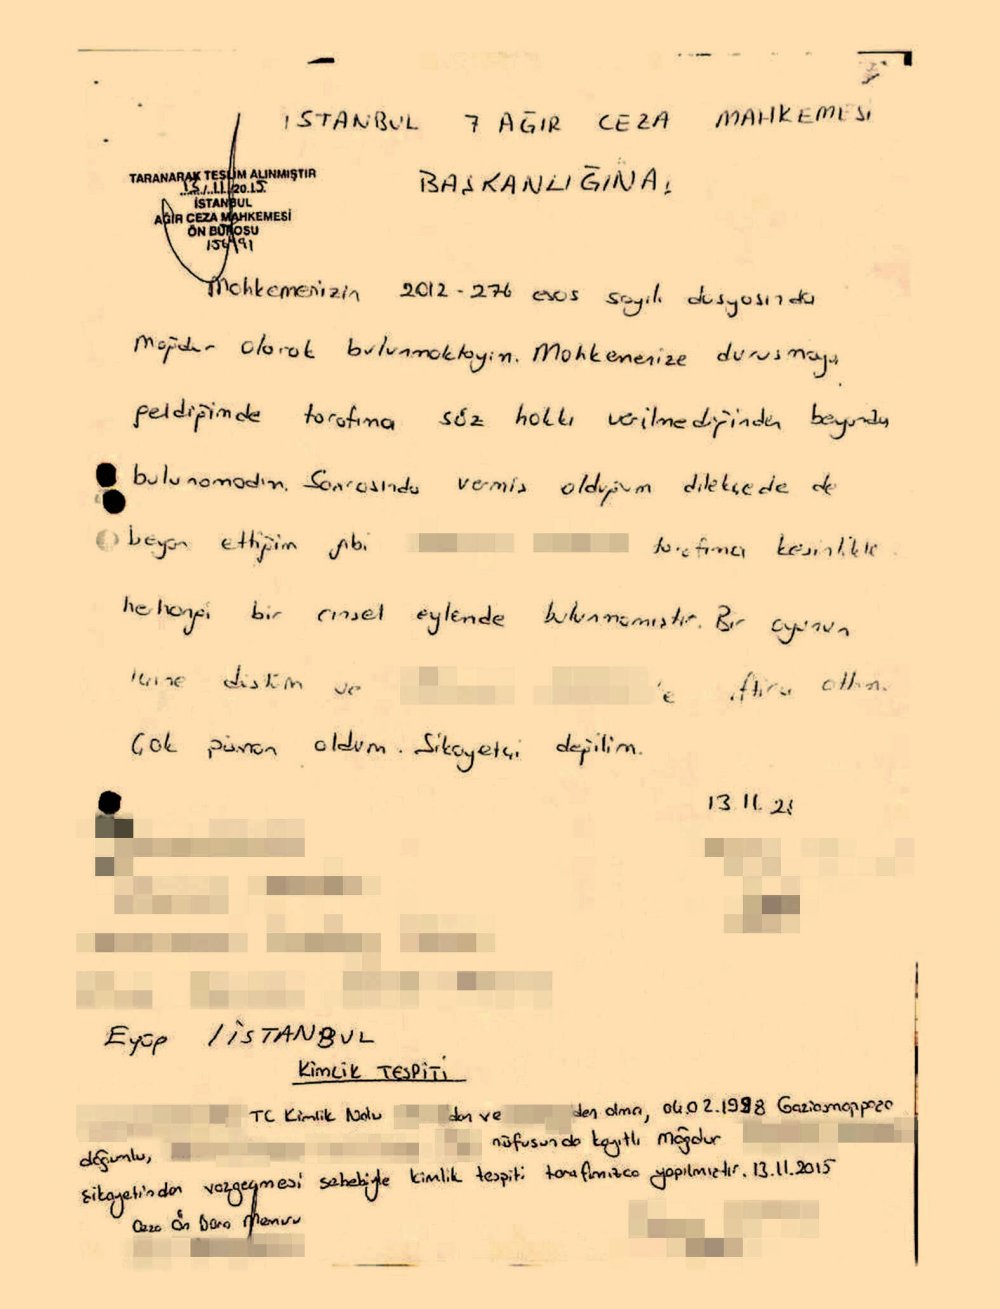 İSTANBUL 7 AĞIR CEZA MAHKEMESİ
BAŞKANLIĞINA;
TARANARAK TESLİM ALINMIŞTIR
13/.11./2015
İSTANBUL
AĞIR CEZA MAHKEMESİ
ÖN BÜROSU
Mahkemenizin 2012-276 esas sayılı dosyasında
mağdur olarak bulunmaktayım. Mahkemenize duruşmaya
geldiğimde tarafıma söz hakkı verilmediğinden beyanda
bulunamadım. Sonrasında vermiş olduğum dilekçede de
beyan ettiğim gibi tarafıma kesinlikle
herhangi bir cinsel eylemde bulunmamıştır. Bir oyunun
içine düştüm ve 'e iftira attım.
Çok pişman oldum. Şikayetçi değilim.
13.11.
Eyüp / İSTANBUL
KİMLİK TESPİTİ
TC Kimlik Nolu dan ve den olma, 04.02.1998 Gaziosmanpaşa
doğumlu, nüfusunda kayıtlı mağdur
şikayetinden vazgeçmesi sebebiyle kimlik tespiti tarafımızca yapılmıştır. 13.11.2015
Ceza Ön Büro Memuru